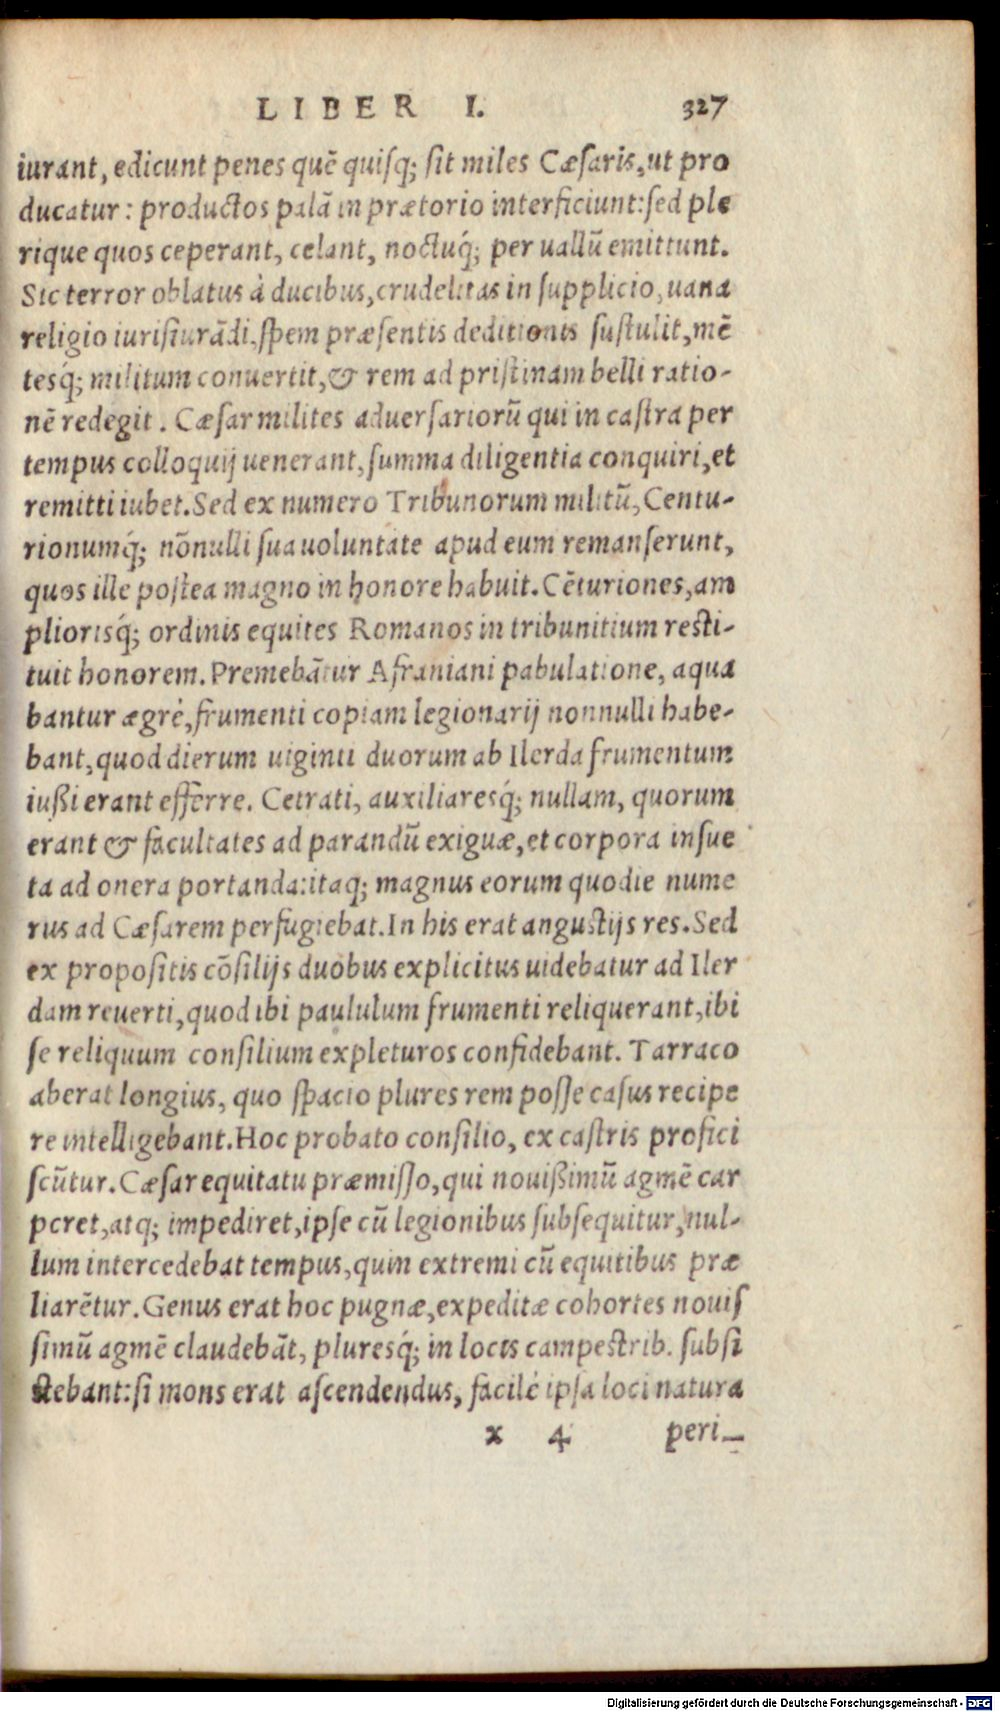 LIBER I. 327
iurant, edicunt penes quē quisq; sit miles Cæsaris, ut pro
ducatur: productos palā in prætorio interficiunt: sed ple
rique quos ceperant, celant, noctuq́; per uallū emittunt.
Sic terror oblatus à ducibus, crudelitas in supplicio, uana
religio iurisiurādi, spem præsentis deditionis sustulit, mē
tesq́; militum conuertit, & rem ad pristinam belli ratio-
nē redegit. Cæsar milites aduersariorū qui in castra per
tempus colloquij uenerant, summa diligentia conquiri, et
remitti iubet. Sed ex numero Tribunorum militū, Centu-
rionumq́; nōnulli sua uoluntate apud eum remanserunt,
quos ille postea magno in honore habuit. Cēturiones, am
pliorisq́; ordinis equites Romanos in tribunitium resti-
tuit honorem. Premebātur Afraniani pabulatione, aqua
bantur ægrè, frumenti copiam legionarij nonnulli habe-
bant, quod dierum uiginti duorum ab Ilerda frumentum
iußi erant efferre. Cetrati, auxiliaresq́; nullam, quorum
erant & facultates ad parandū exiguæ, et corpora insue
ta ad onera portanda: itaq; magnus eorum quodie nume
rus ad Cæsarem perfugiebat. In his erat angustijs res. Sed
ex propositis cōsilijs duobus explicitus uidebatur ad Iler
dam reuerti, quod ibi paululum frumenti reliquerant, ibi
se reliquum consilium expleturos confidebant. Tarraco
aberat longius, quo spacio plures rem posse casus recipe
re intelligebant. Hoc probato consilio, ex castris profici
scūtur. Cæsar equitatu præmisso, qui nouißimū agmē car
peret, atq; impediret, ipse cū legionibus subsequitur, nul-
lum intercedebat tempus, quin extremi cū equitibus præ
liarētur. Genus erat hoc pugnæ, expeditæ cohortes nouis
simū agmē claudebāt, pluresq́; in locis campestrib. subsi
stebant: si mons erat ascendendus, facilè ipsa loci natura
x 4 peri-
Digitalisierung gefördert durch die Deutsche Forschungsgemeinschaft - DFG